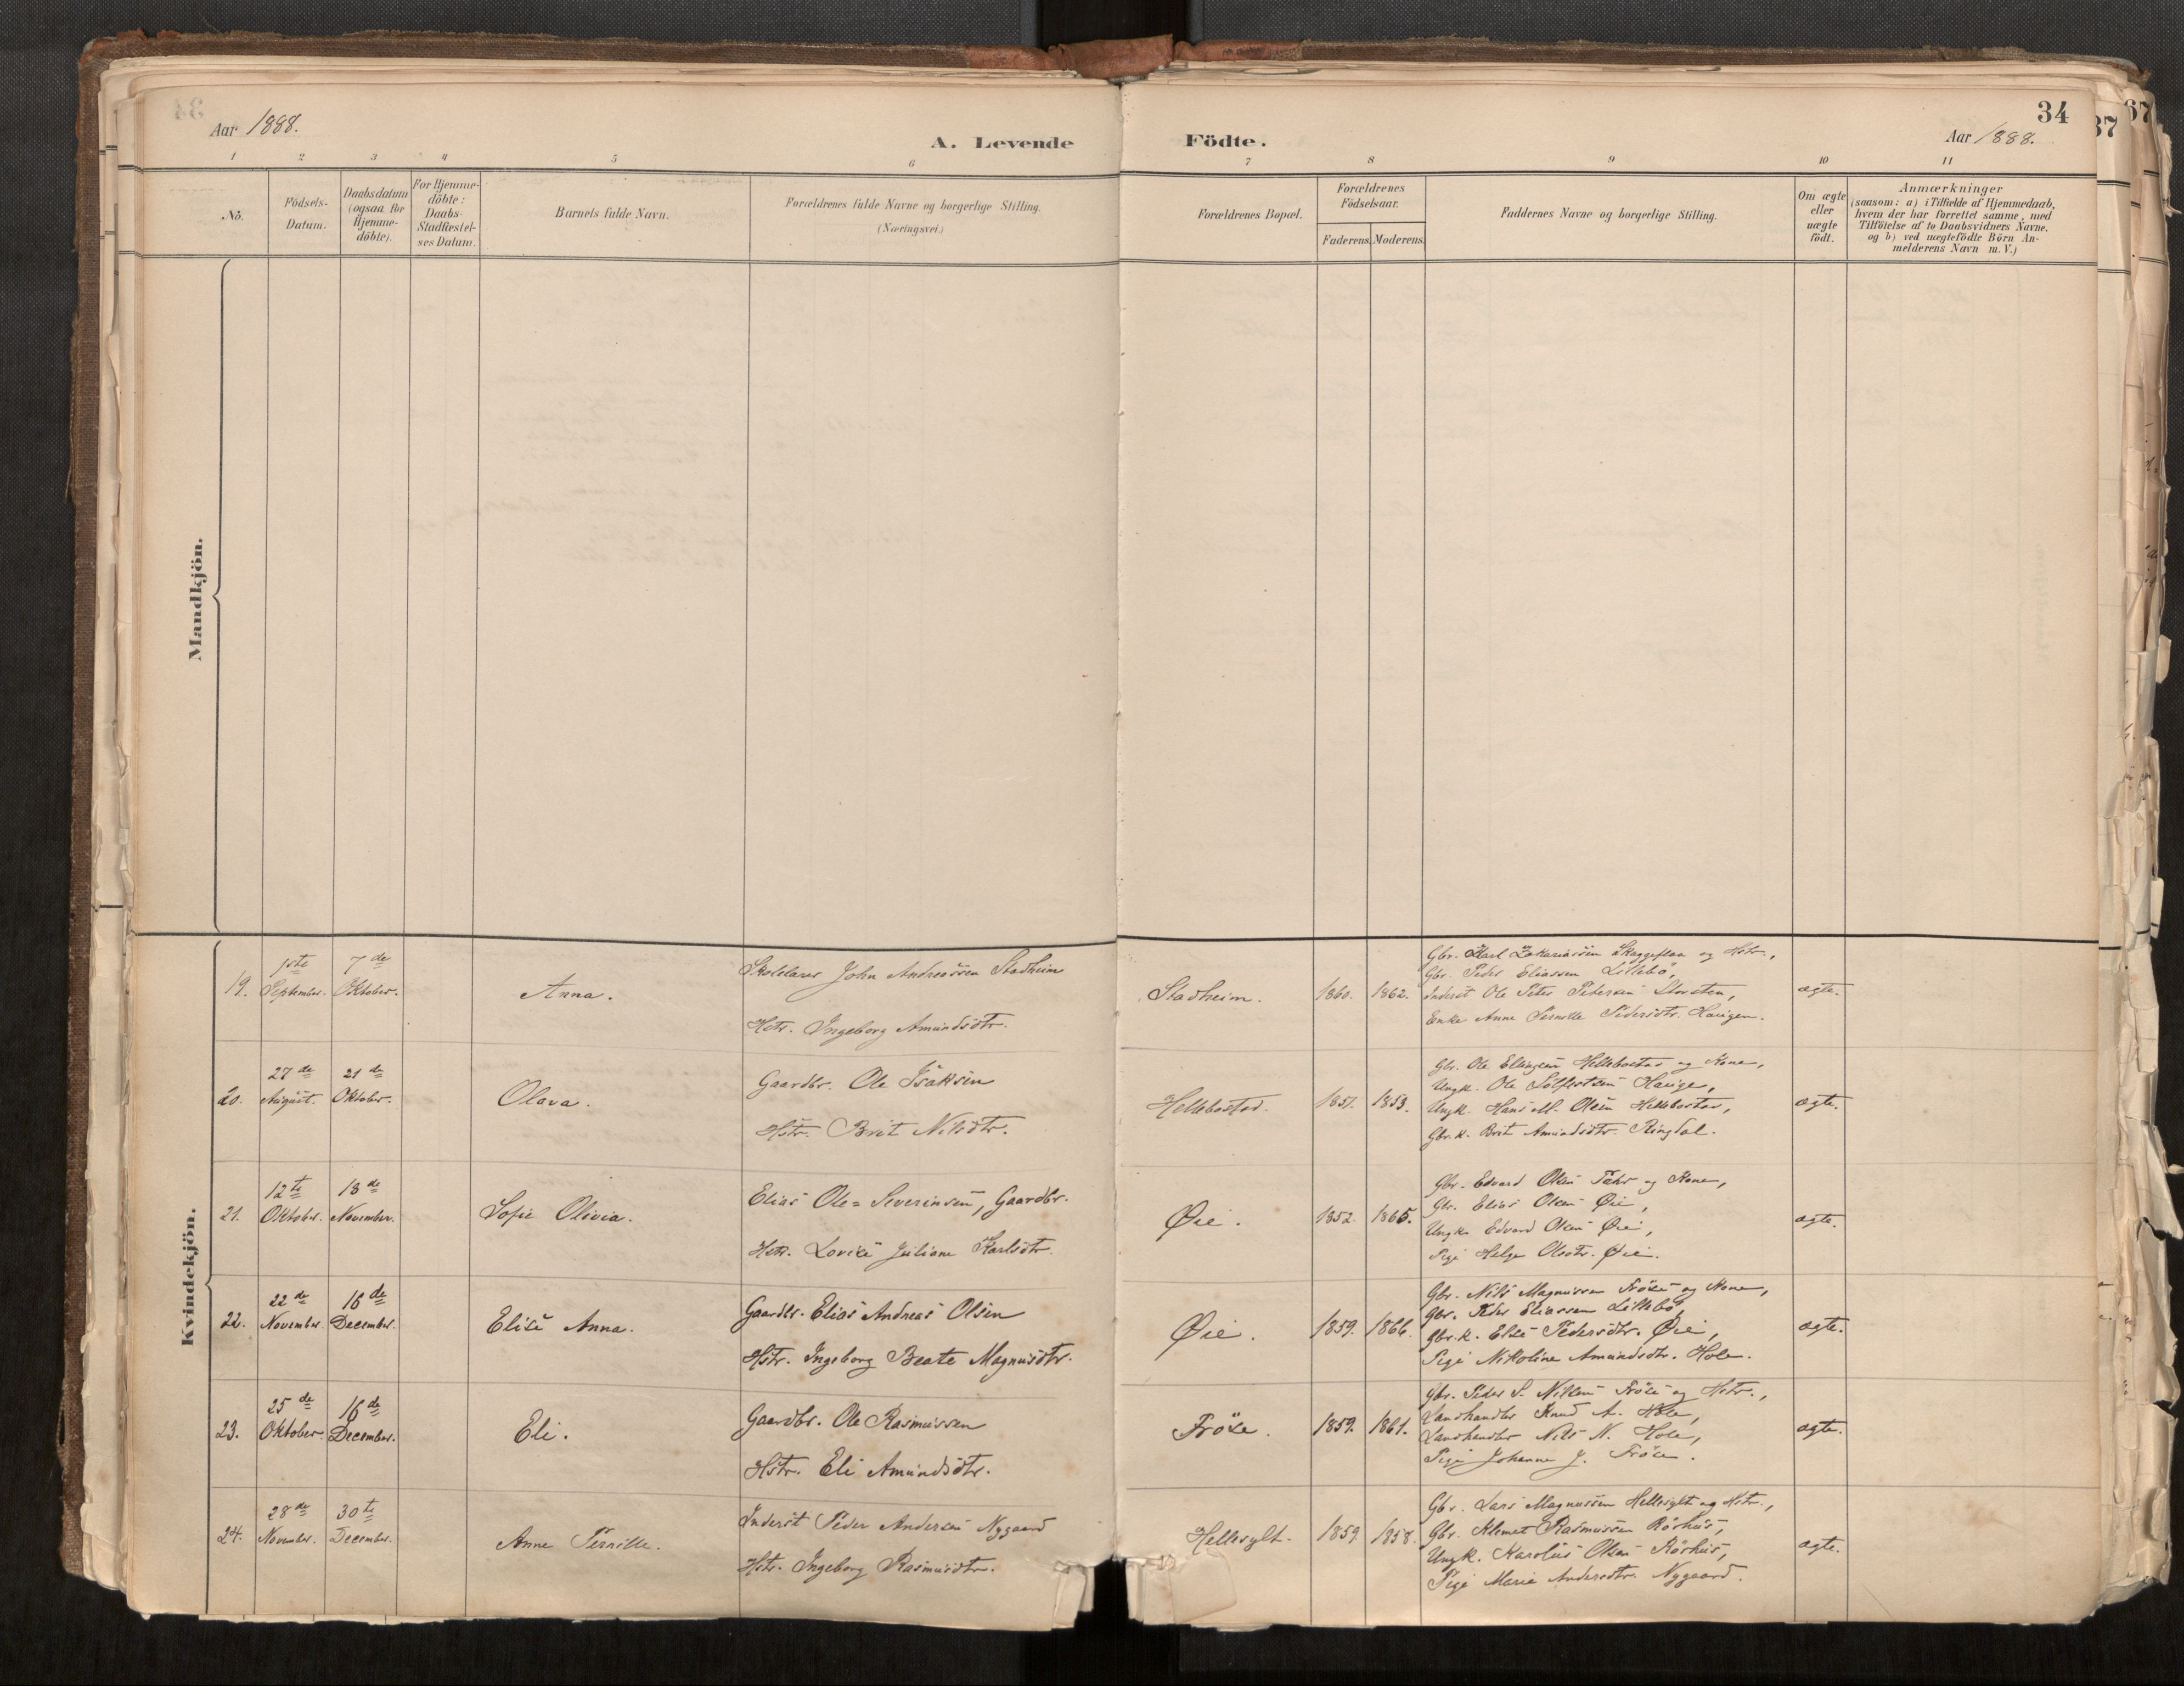 34
Aar 1888.
A. Levende Födte.
Aar 1888.
1 2 3 4 5 6 7 8 9 10 11
No.
Födsels-Datum.
Daabsdatum (ogsaa for Hjemme-döbte).
For Hjemme-döbte: Daabs-Stadfæstel-ses Datum.
Barnets fulde Navn.
Forældrenes fulde Navne og borgerlige Stilling.
(Næringsvei.)
Forældrenes Bopæl.
Forældrenes Födselsaar.
Faderens. Moderens.
Faddernes Navne og borgerlige Stilling.
Om ægte eller uægte födt.
Anmærkninger
(saasom: a) i Tilfælde af Hjemmedaab,
hvem der har forrettet samme, med
Tilföielse af to Daabsvidners Navne.
og b) ved uægtefödte Börn An-
melderens Navn m.V.)
Mandkjön.
Kvindekjön.
19. 1ste September. 7de Oktober. Anna.
Skolelærer John Andreassen Stadheim
Hstr. Ingeborg Amundsdtr.
Stadheim. 1860. 1862.
Gbr. Karl Zakariassen Skaggeflaa og Hstr.,
Gbr. Peder Eliassen Lillebö,
Inderst Ole Peter Petersen
Enke Anne Pernille Pedersdtr. Haugen.
ægte.
20. 27de August. 21de Oktober. Olava.
Gaardbr. Ole Isaksen
Hstr. Brit Nilsdtr.
Hellebostad. 1851. 1853.
Gbr. Ole Ellingsen Hellebostad og Kone,
Ungk. Ole Hauge,
Ungk. Hans M. Olsen Hellebostad,
Gbr.k. Brit Amundsdtr. Ringdal.
ægte.
21. 12te Oktober. 18de November. Sofie Olivia.
Elias Ole=Severinsen, Gaardbr.
Hstr. Lovise Juliane Karlsdtr.
Øie. 1852. 1865.
Gbr. Edvard Olsen og Kone,
Gbr. Elias Olsen Øie,
Ungk. Edvard Olsen Øie,
Pige Helga Olsdtr. Øie.
ægte.
22. 22de November. 16de December. Elise Anna.
Gaardbr. Elias Andreas Olsen
Hstr. Ingeborg Beate Magnusdtr.
Øie. 1859. 1866.
Gbr. Nils Magnussen Fröse og Kone,
Gbr. Peder Eliassen Lillebö,
Gbr.k. Else Pedersdtr. Øie,
Pige Nikoline Amundsdtr. Hole.
ægte.
23. 25de Oktober. 16de December. Eli.
Gaardbr. Ole Rasmussen
Hstr. Eli Amundsdtr.
Fröse. 1859. 1861.
Gbr. Peder S. Nilsen Fröse og Hstr.,
Landhandler Knud A. Hole,
Landhandler Nils N. Hole,
Pige Johanne J. Fröse.
ægte.
24. 28de November. 30te December. Anne Pernille.
Inderst Peder Andersen Nygaard
Hstr. Ingeborg Rasmusdtr.
Hellesylt. 1859 1858.
Gbr. Lars Magnussen Hellesylt og Hstr.,
Gbr. Klemet Rasmussen Rörhus,
Ungk. Karolus Olsen Rörhus,
Pige Marie Andersdtr. Nygaard.
ægte.